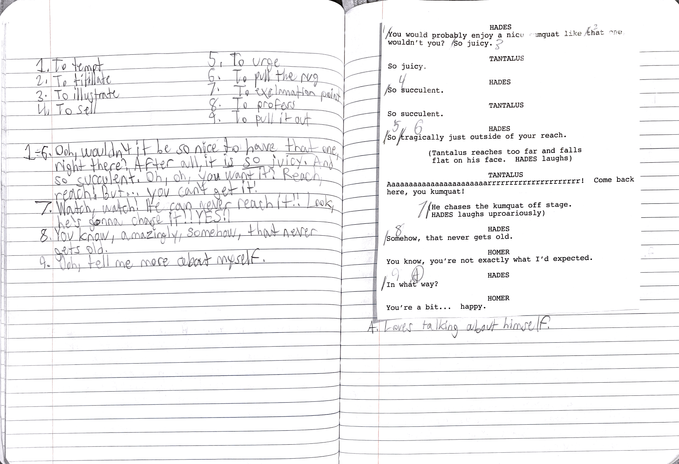 1. To tempt
2. To titillate
3. To illustrate
4. To sell
5. To urge
6. To pull the rug
7. To exclmation point
8. To proffer
9. To pull it out
1-6. Ooh, wouldn't it be so nice to have that one,
right there? After all, it is so juicy. And
so succulent. Oh, oh, you want it? Reach,
reach! But... you can't get it!
7. Watch, watch! He can never reach it!! Look,
he's gonna chase it!! YES!!
8. You know, amazingly, somehow, that never
gets old.
9. Ooh, tell me more about myself.
HADES
1/You would probably enjoy a nice kumquat like /2 that one
wouldn't you? /So juicy. 3
TANTALUS
So juicy.
4
HADES
/So succulent.
TANTALUS
So succulent.
HADES
5 6
/So /tragically just outside of your reach.
(Tantalus reaches too far and falls
flat on his face. HADES laughs)
TANTALUS
Aaaaaaaaaaaaaaaaaaaaaaarrrrrrrrrrrrrrrrrrrrrr! Come back
here, you kumquat!
7/(He chases the kumquat off stage.
HADES laughs uproariously)
8 HADES
/Somehow, that never gets old.
HOMER
You know, you're not exactly what I'd expected.
9 A HADES
/In what way?
HOMER
You're a bit... happy.
A. Loves talking about himself.